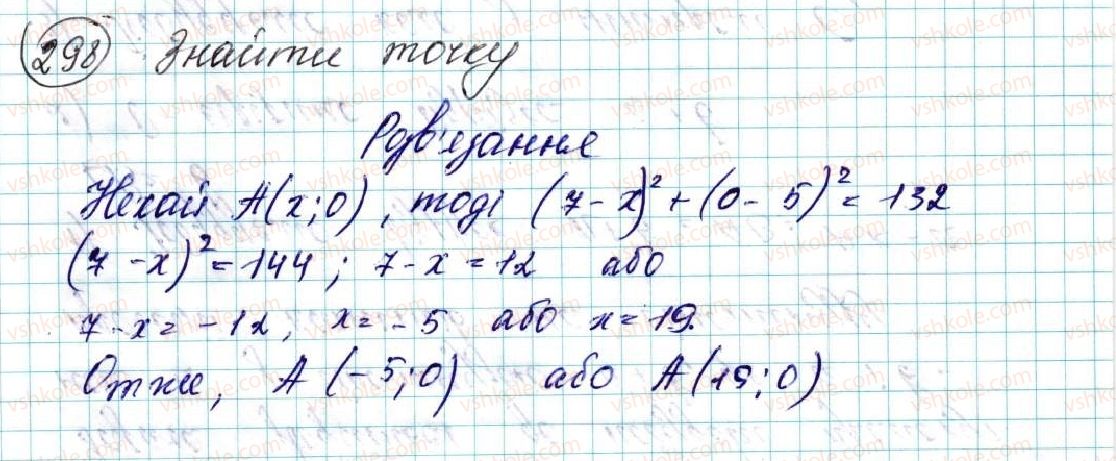 298 Знайти точку
Розв'язання
Нехай A(x;0), тоді (7-x)²+(0-5)²=132
(7-x)²=144; 7-x=12 або
7-x=-12, x=-5 або x=19.
Отже, A(-5;0) або A(19;0)